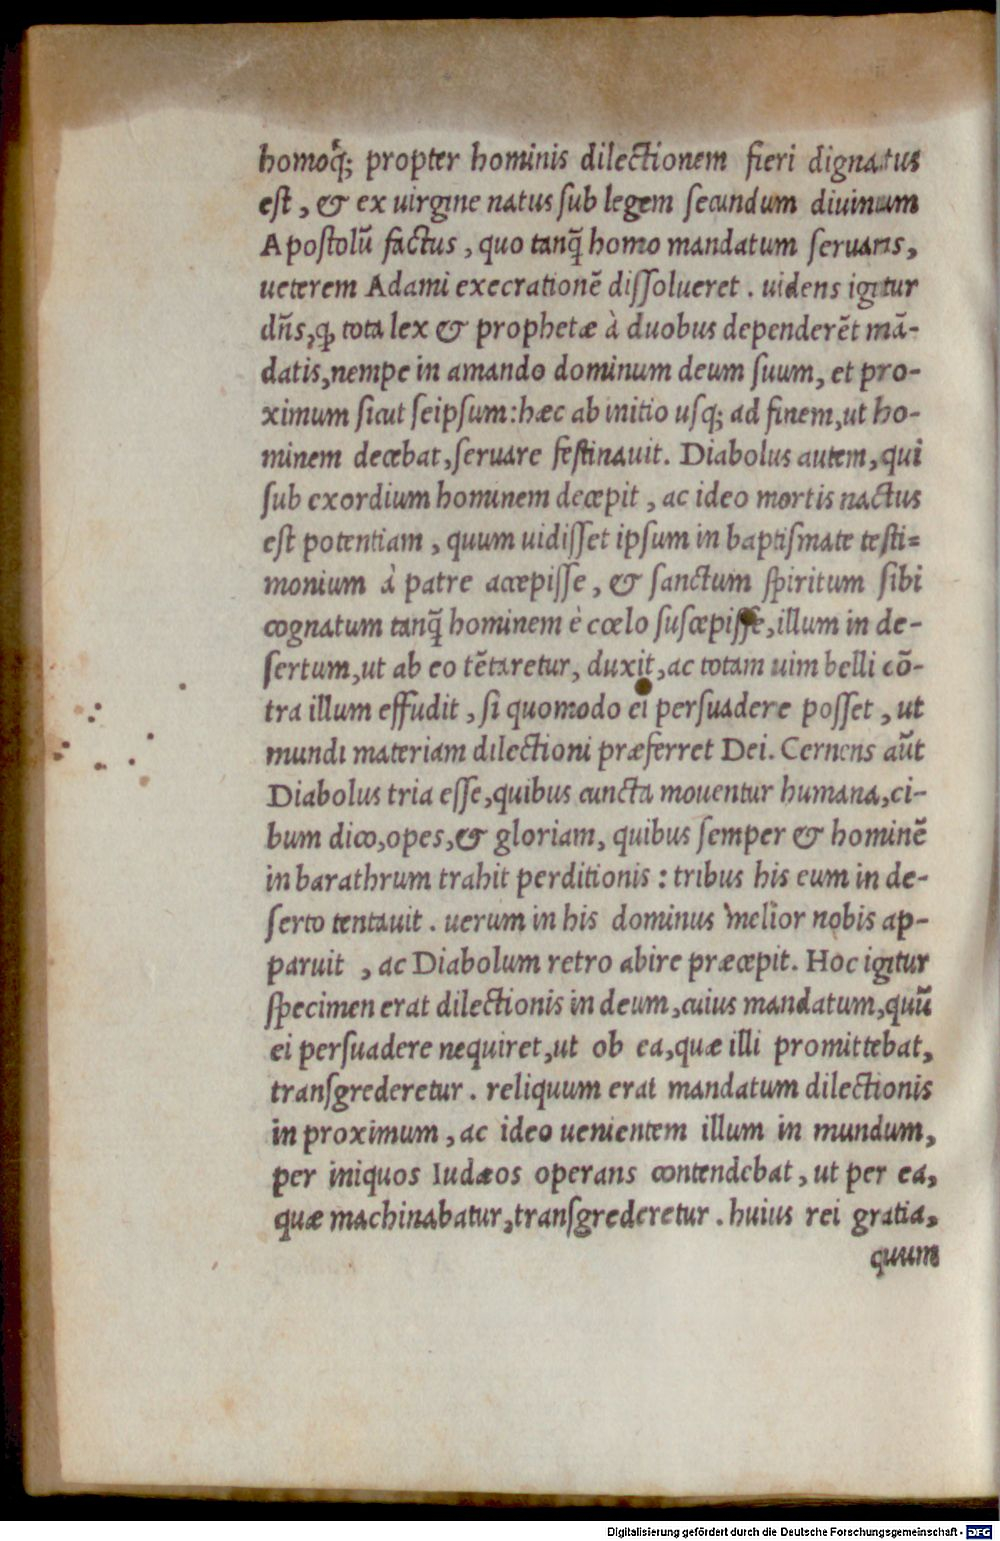 homoq́; propter hominis dilectionem fieri dignatus
est, & ex uirgine natus sub legem secundum diuinum
Apostolũ factus, quo tanq̃ homo mandatum seruans,
ueterem Adami execrationẽ dissolueret. uidens igitur
dñs, ꝙ tota lex & prophetæ à duobus dependerẽt mã-
datis, nempe in amando dominum deum suum, et pro-
ximum sicut seipsum: hæc ab initio usq; ad finem, ut ho-
minem decebat, seruare festinauit. Diabolus autem, qui
sub exordium hominem decepit, ac ideo mortis nactus
est potentiam, quum uidisset ipsum in baptismate testi=
monium à patre accepisse, & sanctum spiritum sibi
cognatum tanq̃ hominem è cœlo suscepisse, illum in de-
sertum, ut ab eo tẽtaretur, duxit, ac totam uim belli cõ-
tra illum effudit, si quomodo ei persuadere posset, ut
mundi materiam dilectioni præferret Dei. Cernens aũt
Diabolus tria esse, quibus cuncta mouentur humana, ci-
bum dico, opes, & gloriam, quibus semper & hominẽ
in barathrum trahit perditionis: tribus his eum in de-
serto tentauit. uerum in his dominus melior nobis ap-
paruit, ac Diabolum retro abire præcepit. Hoc igitur
specimen erat dilectionis in deum, cuius mandatum, quũ
ei persuadere nequiret, ut ob ea, quæ illi promittebat,
transgrederetur. reliquum erat mandatum dilectionis
in proximum, ac ideo uenientem illum in mundum,
per iniquos Iudæos operans contendebat, ut per ea,
quæ machinabatur, transgrederetur. huius rei gratia,
quum
Digitalisierung gefördert durch die Deutsche Forschungsgemeinschaft - DFG